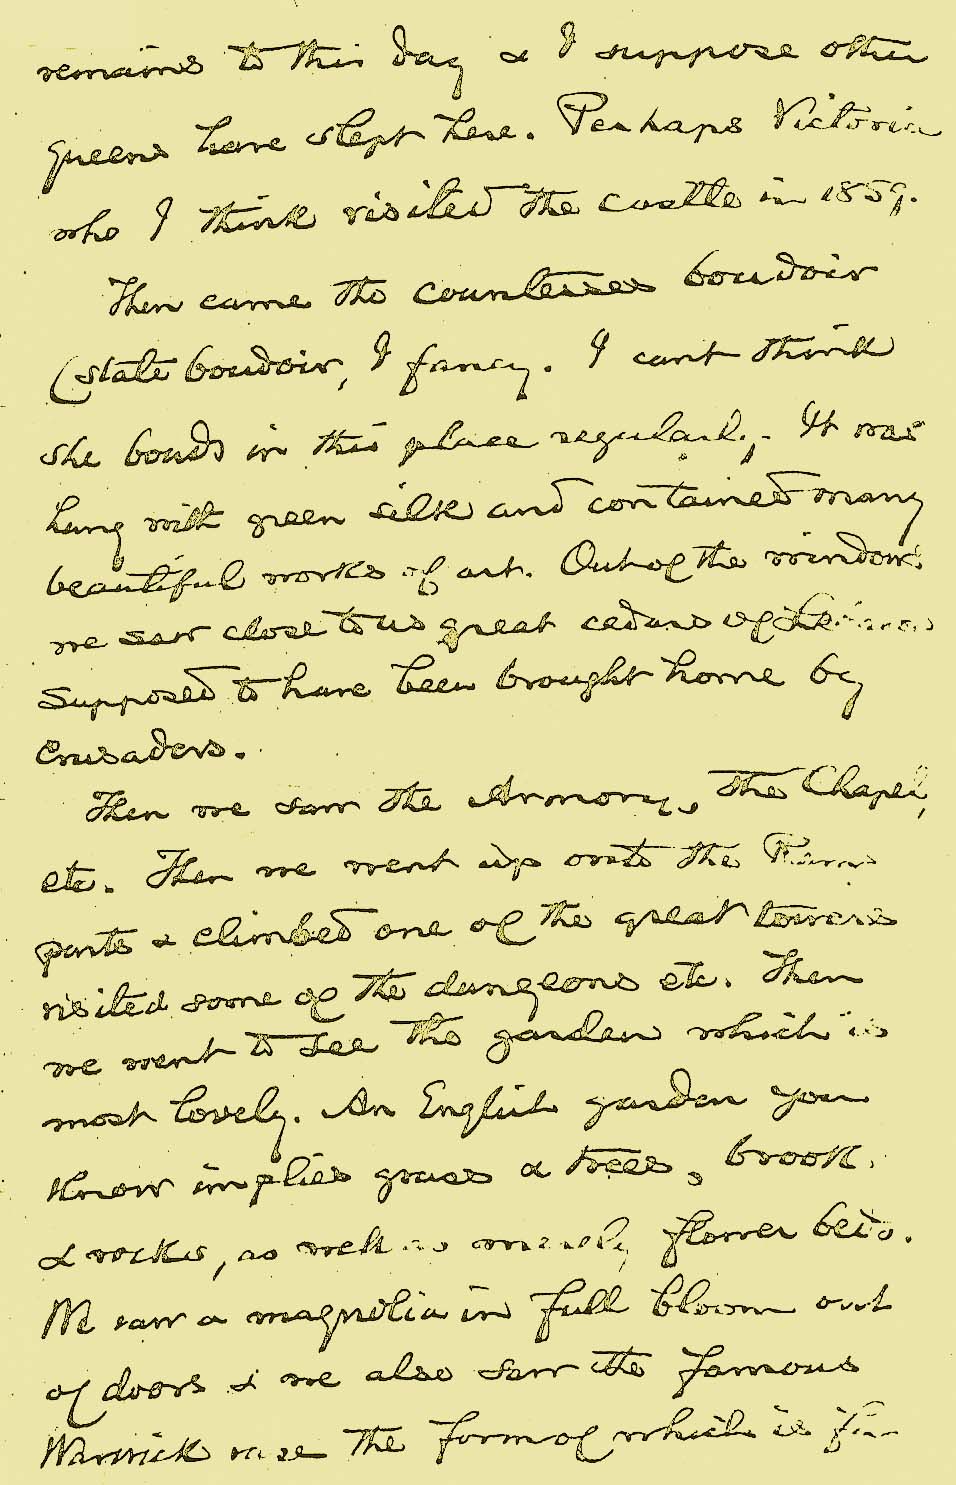 remains to this day & I suppose other
queens have slept here. Perhaps Victoria
who I think visited the castle in 1859.
Then came the countesses boudoir
(state boudoir, I fancy. I cant think
she bouds in this place regularly. It was
hung with green silk and contained many
beautiful works of art. Out of the windows
we saw close to us great cedars of Lebanon
supposed to have been brought home by
Crusaders.
Then we saw the Armory, the Chapel,
etc. Then we went up onto the Ram
parts & climbed one of the great towers
visited some of the dungeons etc. Then
we went to see the garden which is
most lovely. An English garden you
know implies grass & trees, brook
& rocks, as well as merely flower beds.
We saw a magnolia in full bloom out
of doors & we also saw the famous
Warwick vase the form of which is